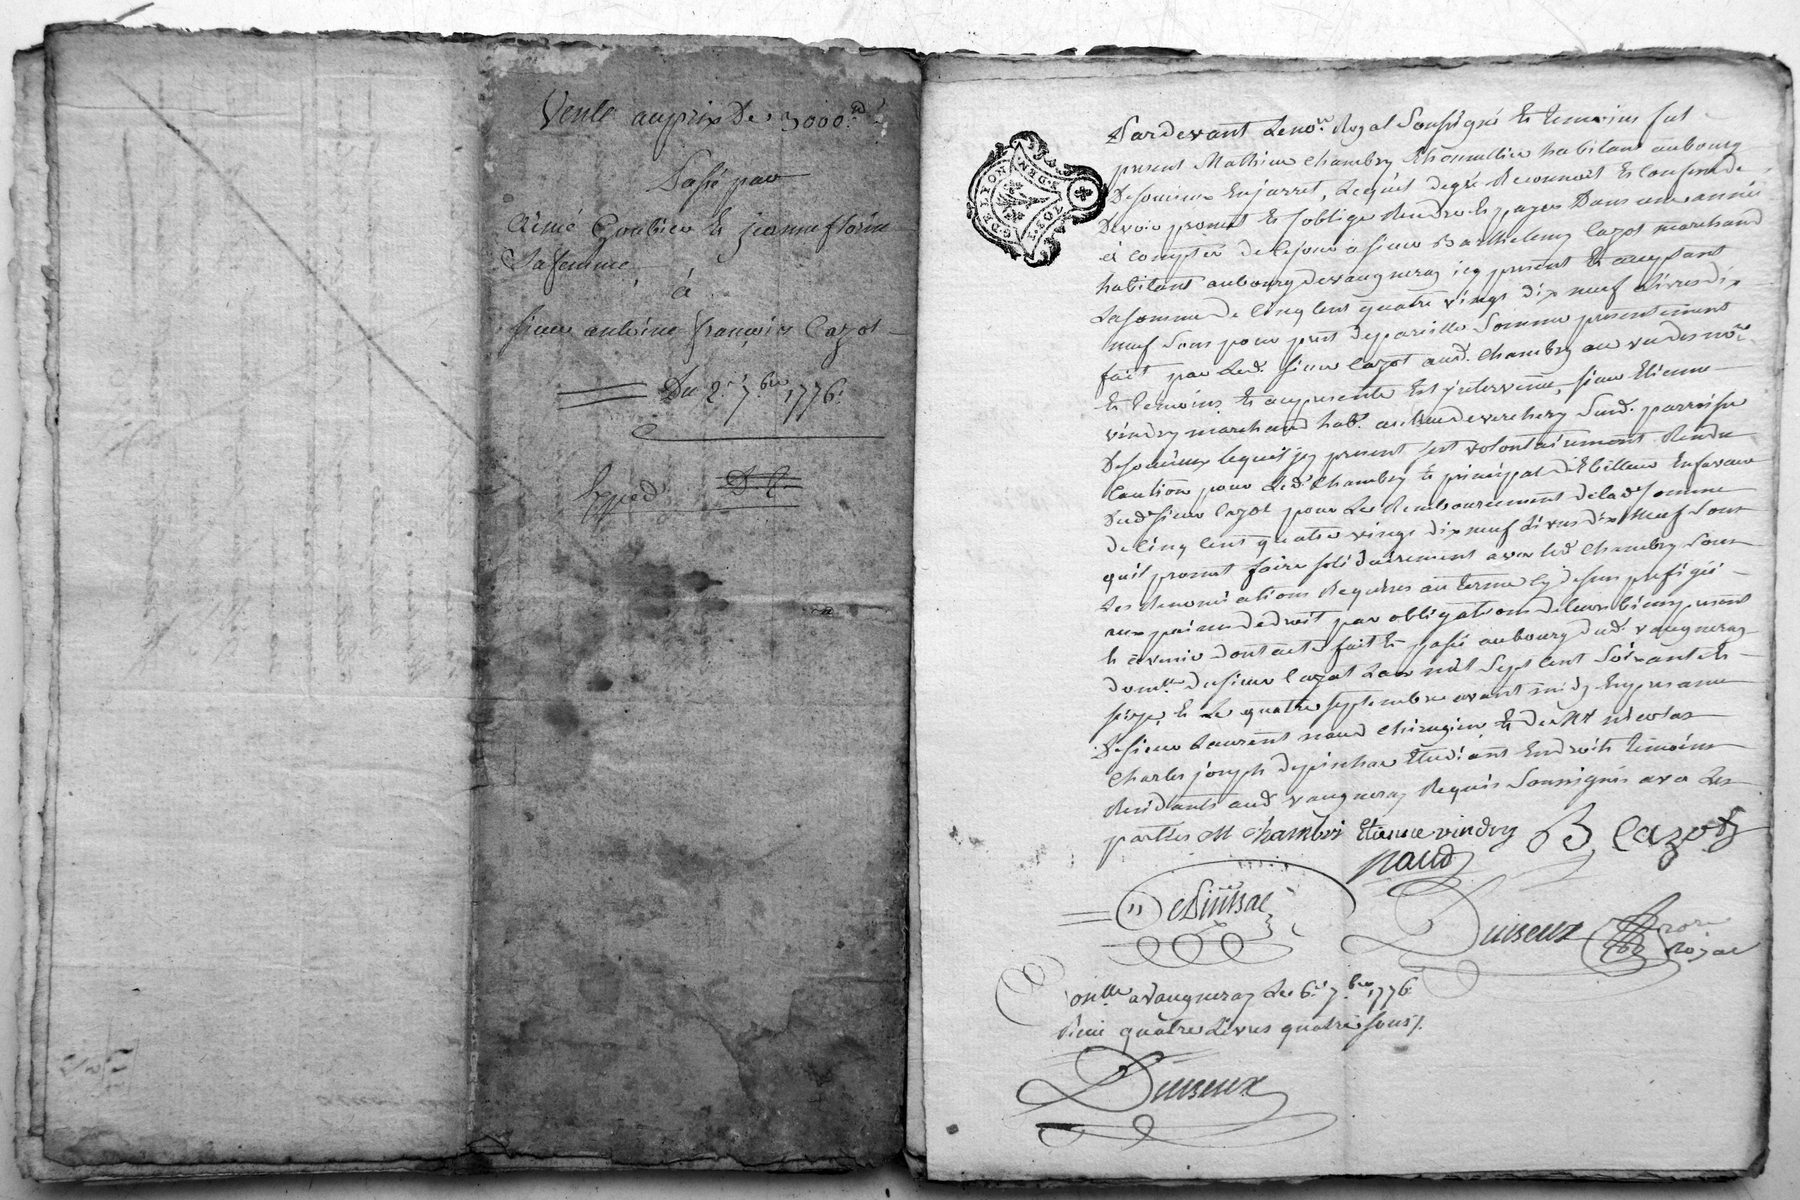 Vente au prix De 3000.#
Passé par
Aimé Goubier et jeanne florin
Sa femme
à
Sieur antoine françois Cazot
Du 2.e 7.bre 1776.
Exped.
Pardevant Le no.re Royal Soussigné Et temoins fut
present Mathieu Chambry habitant au bourg
De Soucieux En jarret, Lequel de gré Reconnoit Et Confesse
Devoir promet Et soblige Rendre Et payer Dans une année
à Compter de Ce jour a sieur Barthelemy Cazot marchand
habitant au bourg de vaugneray icy present Et acceptant
La somme de Cinq Cent quatre vingt dix neuf Livres dix
neuf Sous pour pret de pareille Somme presentement
fait par Led. sieur Cazot aud. Chambry au vu des no.re
Et temoins, Et au present Est intervenu, sieur Etienne
vindry marchand hab.t au lieu de verchery Sud. parroisse
De Soucieux lequel icy present sest volontairement Rendu
Caution pour Led. Chambry Et principal debiteur En faveur
Dud. sieur Cazot pour Le Remboursement de lad. Somme
de Cinq Cent quatre vingt dix neuf Livres dix Neuf Sous
quil promet faire solidairement avec led. Chambry Sous
Les Renonciations Requises au terme Cy dessus prefigé
aux peines de droit par obligations de leurs biens present
Et avenir dont acte fait Et passé au bourg dud. vaugneray
dom.lle du sieur Cazot Lan mil Sept Cent Soixante Et
seize, Et Le quatre septembre avant midy En presence
De sieur Laurent naud Chirurgien, Et de M.r nicolas
Charles joseph Etudiant En droit temoins
Residants aud. vaugneray Requis Soussignés avec Les
parties M Chambri Etienne vindry B, Cazot
naud
Duiseux no.re
Royal
Con.lle a Vaugneray Le 6.e 7.bre 1776.
Reçu quatre Livres quatre sous/.
Duiseux